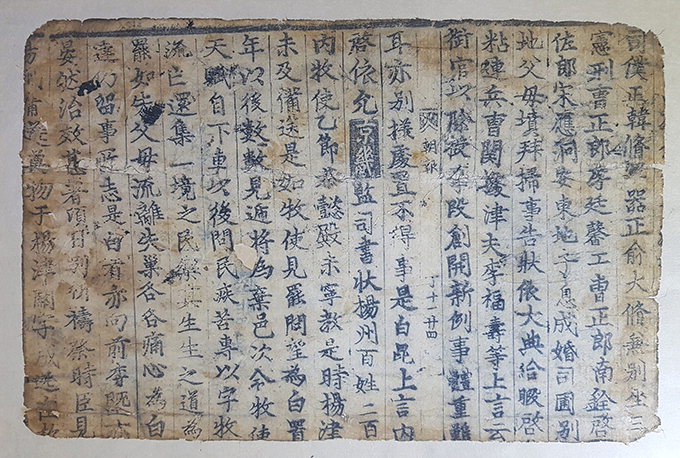 司僕正韓脩 器正俞大脩兼別坐三
憲刑曹正郎李廷馨工曹正郎南銓啓
佐郎宋應泂安東地子息成婚司圃別
地父母墳拜掃事告狀依大典給暇啓
粘連兵曹關據津夫李福壽等上言云
以勝授 段創開新例事體重難
朝報 丁十一廿四
耳亦別樣處置不得事是白昆上言內
啓依允京畿監司書狀楊州百姓二百
內牧使乙節恭懿殿未寧教是時楊津
未及備送是如牧使見罷悶望爲白置
年以後數數見遞將爲棄邑次今牧使
天職自下車以後問民疾苦專以字牧
流亡還集一境之民 生生之道爲
罷如失父母流離失巢各各痛心爲白
事所志是白有亦向前李墍
晏然治效甚著項日別祈禱祭時臣見
萬物子楊津關字